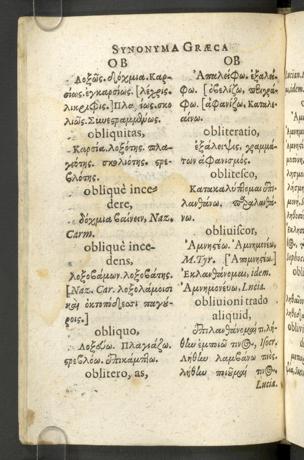 SYNONYMA GRÆCA
OB
Λοξῶς. δόχμια. Καρ-
σίως. ἐγκαρσίως. [λέχρις.
λικριφίς.] Πλαγίως. σκο-
λιῶς. Συνεστραμμένως.
obliquitas,
Καρσία. λοξότης. πλα-
γιότης. σκολιότης. στρε-
βλότης.
obliquè ince-
dere,
δόχμια βαίνειν, Naz.
Carm.
obliquè ince-
dens,
λοξοβάμων. λοξοβάτης.
[Naz. Car. λοξολάμοισι
καὶ ὀκτοπόδεσσι παγύ-
ροις.]
obliquo,
Λοξόω. Πλαγιάζω.
στρεβλόω. ἐπικάμπτω.
oblitero, as,
OB
Ἀπαλείφω. ἐξαλεί-
φω. [ὀβελίζω, περιγρά-
φω. [ἀφανίζω. Καταλε-
αίνω.
obliteratio,
ἐξάλειψις. γραμμά-
των ἀφανισμός.
oblitesco,
Κατακαλύπτομαι. ἐπι-
λανθάνω.
obliuiscor,
Ἀμνηστέω. Ἀμνημονέω,
M. Tyr. [Ἀπομνηστέω.]
Ἐκλανθάνομαι, idem.
Ἀμνημονεύω, Lucia.
obliuioni trado
aliquid,
Ἐπιλανθάνομαί τι. λή-
θην ἐμποιῶ τινος, Isocr.
Λήθην λαμβάνω τινός.
λήθην ποιοῦμαί τινος
Lucia.